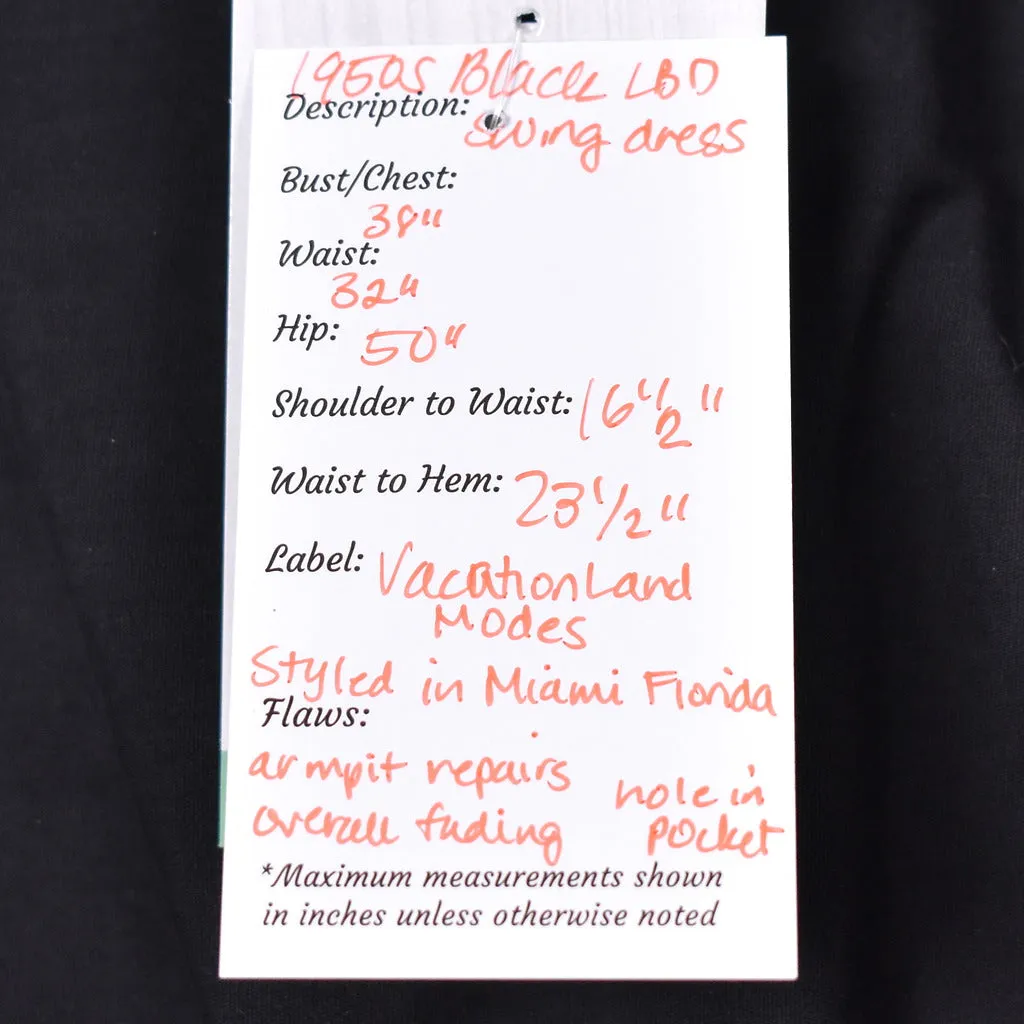 1950s Black LBD
Description: swing dress
Bust/Chest:
38"
Waist:
32"
Hip: 50"
Shoulder to Waist: 16 1/2"
Waist to Hem: 23 1/2"
Label: Vacation Land
Modes
Styled in Miami Florida
Flaws:
armpit repairs
overall fading hole in pocket
*Maximum measurements shown
in inches unless otherwise noted